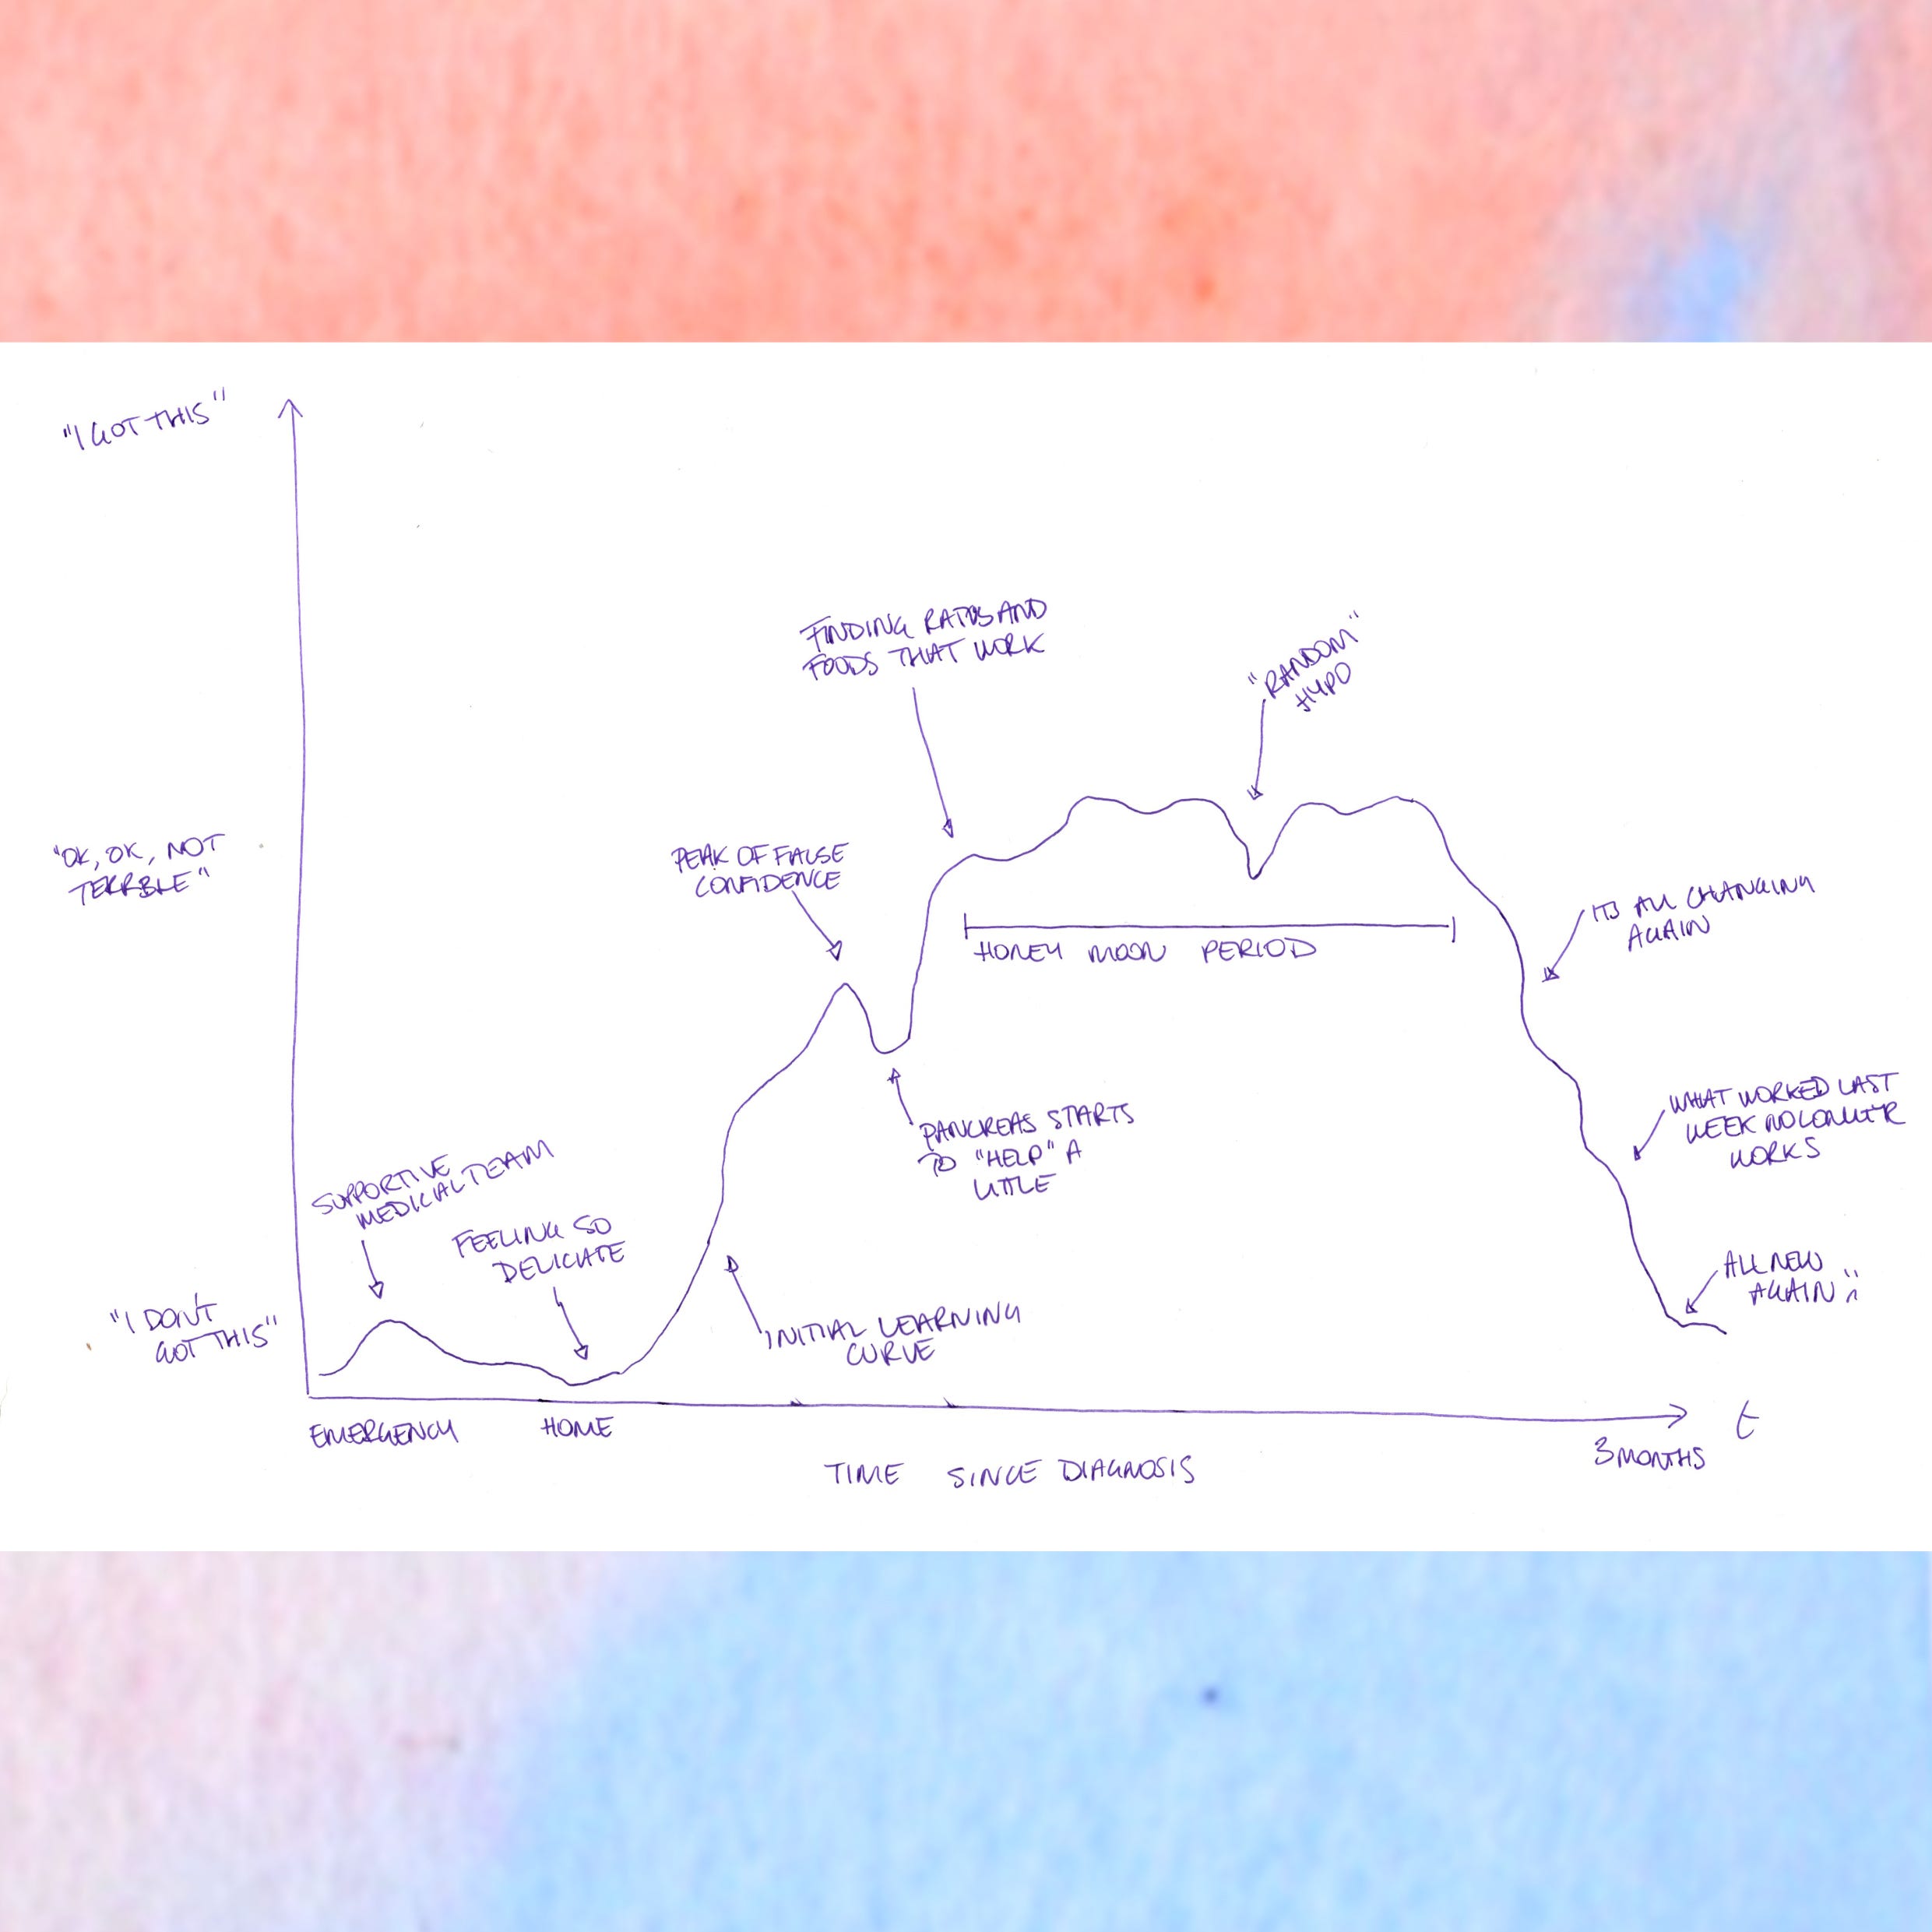 "I GOT THIS"
FINDING RATIOS AND
FOODS THAT WORK
"RANDOM"
HYPO
"OK, OK, NOT
TERRBLE"
PEAK OF FALSE
CONFIDENCE
ITS ALL CHANGING
AGAIN
HONEY MOON PERIOD
PANCREAS STARTS
TO "HELP" A
LITTLE
WHAT WORKED LAST
WEEK NO LONGER
WORKS
SUPPORTIVE
MEDICIAL TEAM
FEELING SO
DELICATE
"I DON'T
GOT THIS"
INITIAL LEARNING
CURVE
ALL NEW
AGAIN :(
EMERGENCY
HOME
3 MONTHS
t
TIME SINCE DIAGNOSIS